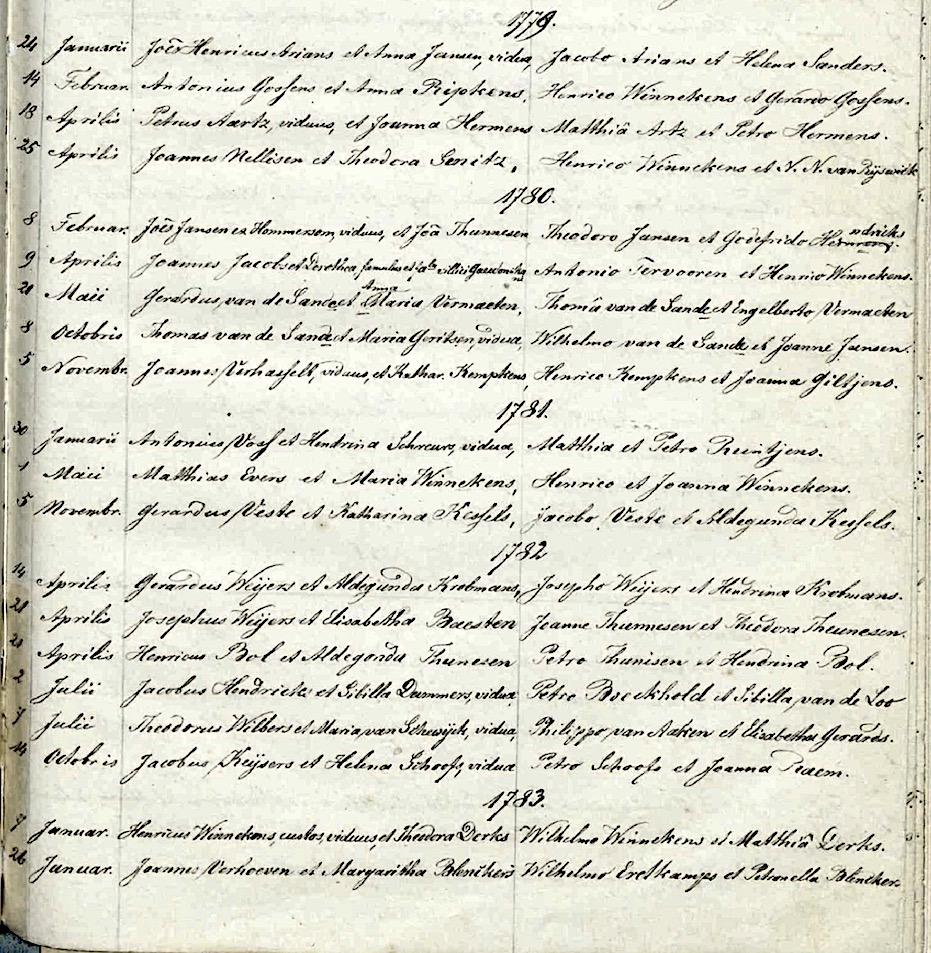 1779.
24 Januarii Joēs Henricus Arians et Anna Jansen, vidua, Jacobo Arians et Helena Sanders.
14 Februar. Antonius Gossens et Anna Rijpkens, Henrico Winnekens et Gerardo Gossens.
18 Aprilis Petrus Aartz, viduus, et Joanna Hermens Matthiâ Artz et Petro Hermens.
25 Aprilis Joannes Nellisen et Theodora Gerritz, Henrico Winnekens et N. N. van Rijswick
1780.
8 Februar. Joēs Jansen ex Hommersom, viduus, et Joā Thunnesen Theodoro Jansen et Godefrido Hendricks
9 Aprilis Joannes Jacobs et Dorothea famulus et villici Antonio Tervooren et Henrico Winnekens.
21 Maii Gerardus, van de Sande et Anna Maria Vermaeten, Thomâ van de Sande et Engelberto Vermaeten
8 Octobris Thomas van de Sande et Maria Geritsen, vidua, Wilhelmo van de Sande et Joanne Jansen.
5 Novembr. Joannes Verhasselt, viduus, et Kathar. Kempkens, Henrico Kempkens et Joanna Giltjens.
1781.
30 Januarii Antonius Vosf et Hendrina Schreurs, vidua, Matthia et Petro Reintjens.
1 Maii Matthias Evers et Maria Winnekens, Henrico et Joanna Winnekens.
5 Novembr. Gerardus Veste et Katharina Kessels, Jacobo Veste et Aldegunda Kessels.
1782
14 Aprilis Gerardus Weijers et Aldegunda Krobmans, Josepho Weijers et Hendrina Krobmans.
21 Aprilis Josephus Weijers et Elisabetha Baesten Joanne Thunnesen et Theodora Theunesen.
21 Aprilis Henricus Bol et Aldegonda Thunesen Petro Thunisen et Hendrina Bol.
2 Julii Jacobus Hendricks et Sibilla Dammers, vidua, Petro Boeckhold et Sibilla van de Loo
7 Julii Theodorus Wolbers et Maria van Schewijck, vidua, Philippo van Aaken et Elisabetha Gerards.
14 Octobris Jacobus Keijsers et Helena Schoofs, vidua Petro Schoofs et Joanna Raem.
1783.
7 Januar. Henricus Winnekens, custos, viduus, et Theodora Derks Wilhelmo Winnekens et Matthiâ Derks.
26 Januar. Joannes Verhoeven et Margaritha Blenckers Wilhelmo Eretkamps et Petronella Blencker.